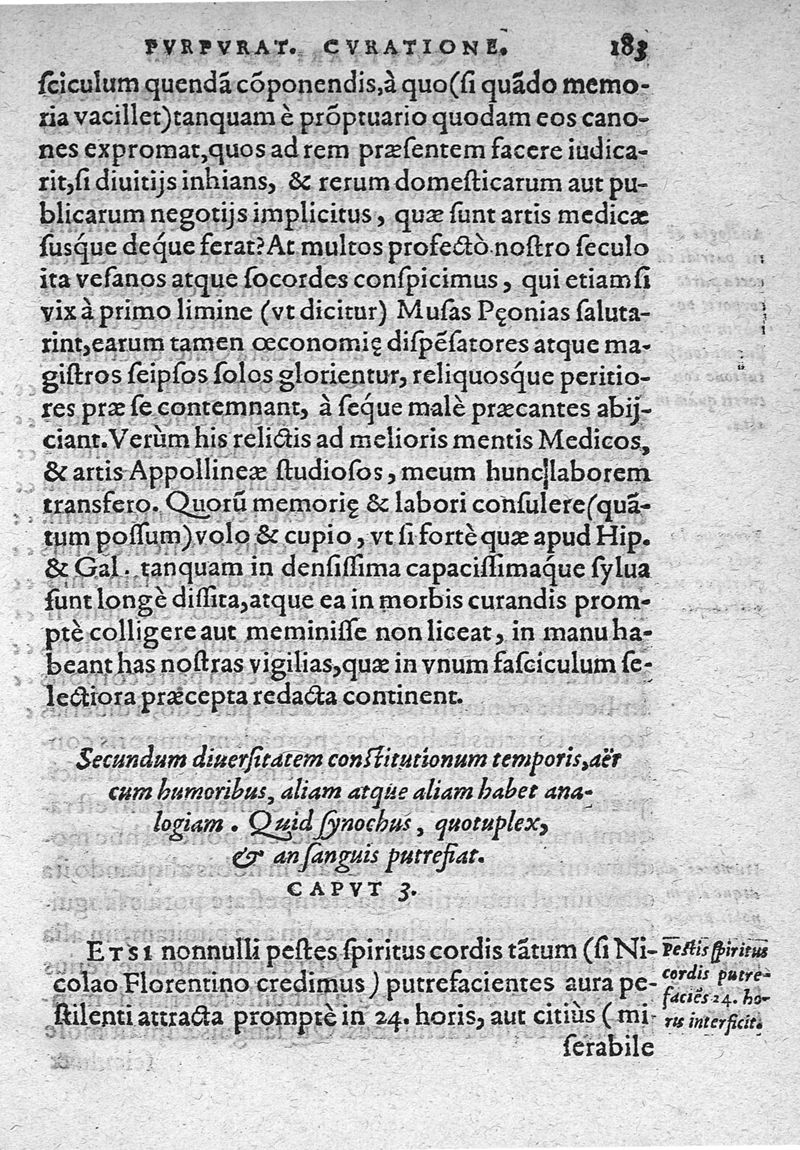 PVRPVRAT. CVRATIONE. 183
ſciculum quendã cõponendis,à quo(ſi quãdo memo-
ria vacillet)tanquam è prõptuario quodam eos cano-
nes expromat,quos ad rem præſentem facere iudica-
rit,ſi diuitijs inhians, & rerum domeſticarum aut pu-
blicarum negotijs implicitus, quæ ſunt artis medicæ
ſuſq́ue deq́ue ferat?At multos profectò noſtro ſeculo
ita veſanos atque ſocordes conſpicimus, qui etiamſi
vix à primo limine (vt dicitur) Muſas Pęonias ſaluta-
rint,earum tamen œconomię diſpẽſatores atque ma-
giſtros ſeipſos ſolos glorientur, reliquoſq́ue peritio-
res præ ſe contemnant, à ſeq́ue malè præcantes abij-
ciant.Verùm his relictis ad melioris mentis Medicos,
& artis Appollineæ ſtudioſos, meum hunc laborem
transfero. Quorũ memorię & labori conſulere(quã-
tum poſſum)volo & cupio, vt ſi fortè quæ apud Hip.
& Gal. tanquam in denſiſſima capaciſſimaq́ue ſylua
ſunt longè diſſita,atque ea in morbis curandis prom-
ptè colligere aut meminiſſe non liceat, in manu ha-
beant has noſtras vigilias,quæ in vnum faſciculum ſe-
lectiora præcepta redacta continent.
Secundum diuerſitatem conſtitutionum temporis,aër
cum humoribus, aliam atque aliam habet ana-
logiam. Quid ſynochus, quotuplex,
& an ſanguis putrefiat.
CAPVT 3.
ETSI nonnulli peſtes ſpiritus cordis tãtum (ſi Ni-
colao Florentino credimus) putrefacientes aura pe-
ſtilenti attracta promptè in 24. horis, aut citiùs (mi-
ſerabile
Peſtis ſpiritus
cordis putre-
faciẽs 24. ho-
ris interficit.